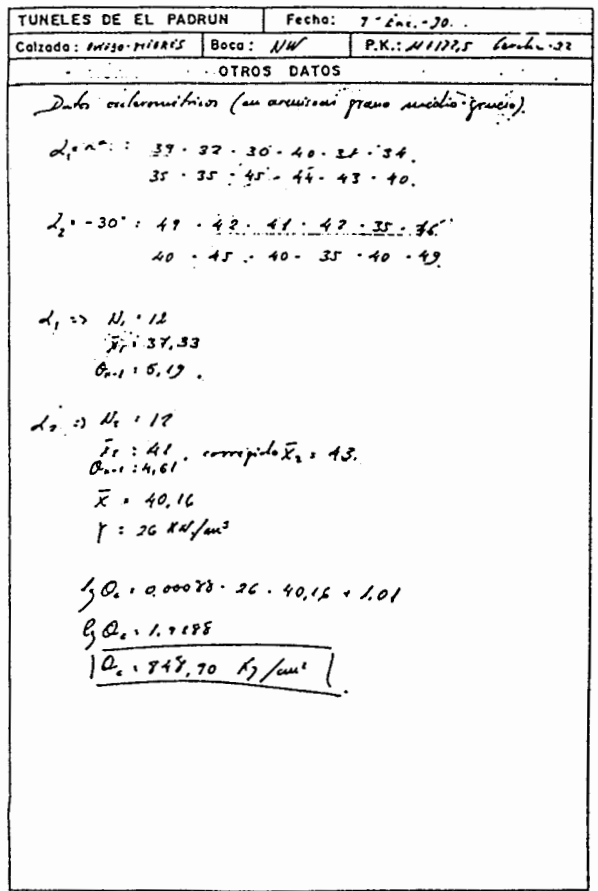 TUNELES DE EL PADRUN Fecha: 7 - Ene. - 90.
Calzada: Oviedo-Mieres Boca: NW P.K.:
OTROS DATOS
Datos esclerométricos (en arenisca grano medio-grueso).
α₁ = : 39 - 32 - 30 - 40 - 31 - 34.
35 - 35 - 45 - 44 - 43 - 40.
α₂ = -30° : 49 - 42 - 41 - 42 - 35 -
40 - 45 - 40 - 35 - 40 - 49.
α₁ => N₁ = 12
x̄₁ = 37,33
σₙ₋₁ = 5,19.
α₂ => N₂ = 12
x̄₂ = 41, corregido x̄₂ = 43.
σₙ₋₁ = 4,61
x̄ = 40,16
γ = 26 KN/m³
lg σc = 0,00088 · 26 · 40,16 + 1,01
lg σc =
σc = 848,90 Kg/cm²